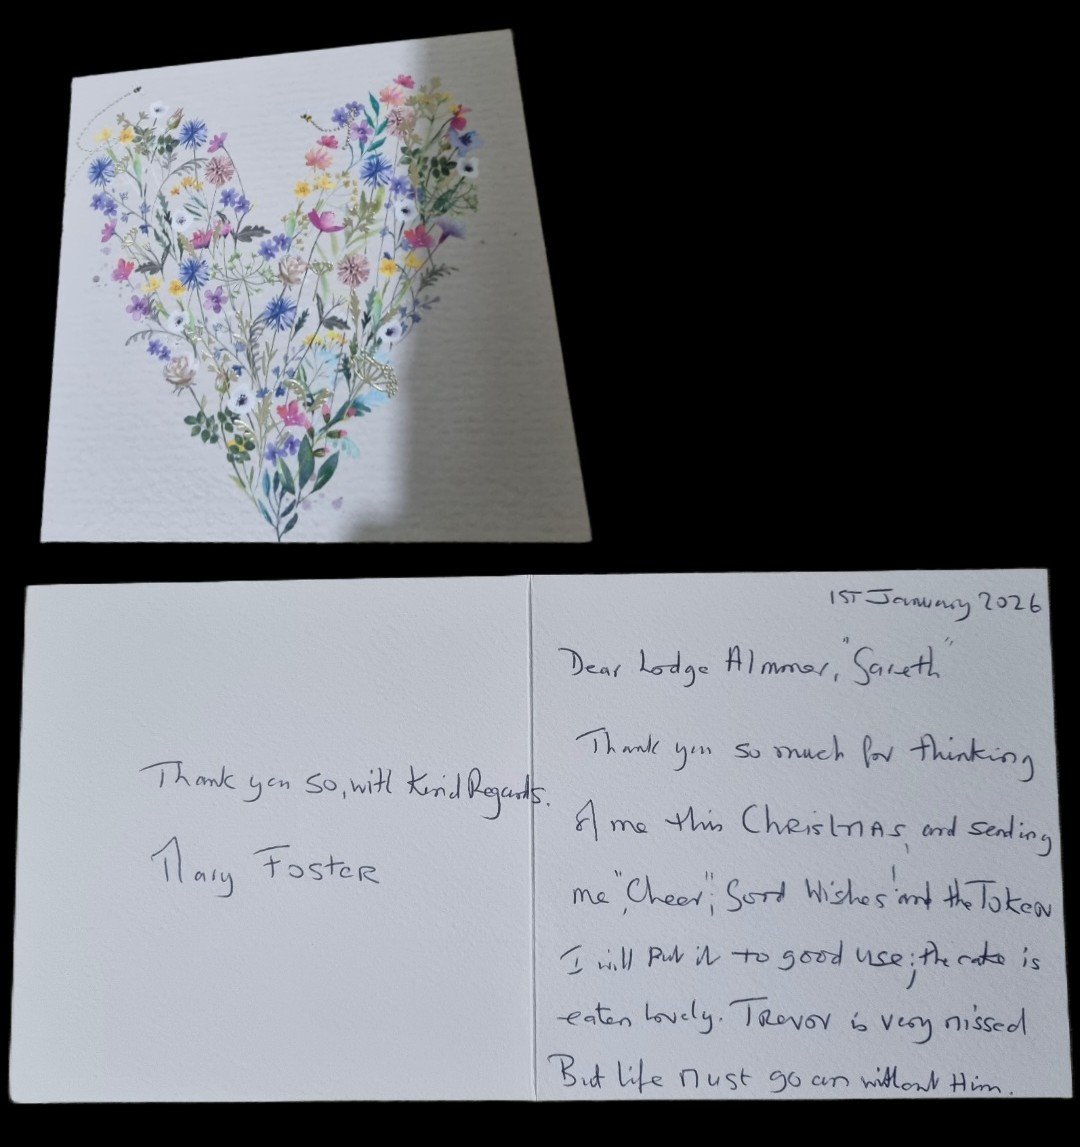 1ST January 2026
Dear Lodge Almoner, "Gareth"
Thank you so much for thinking
of me this Christmas, and sending
me "Cheer"; Good Wishes and the Token
I will put it to good use; the cake is
eaten lovely. Trevor is very missed
But life must go on without Him.
Thank you so, with Kind Regards.
Mary Foster